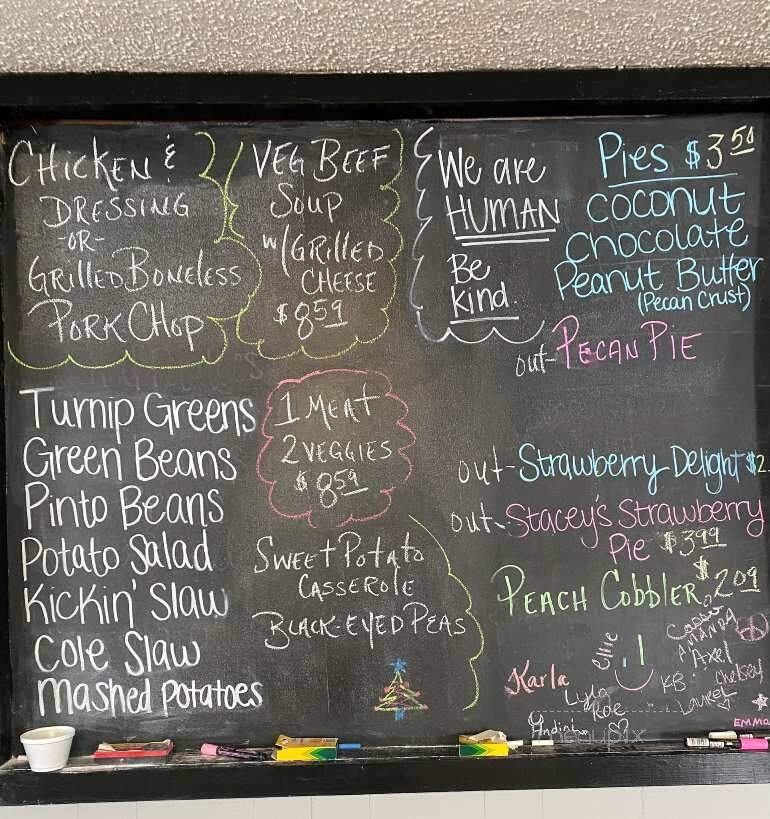 CHICKEN &
DRESSING
-OR-
GRILLED BONELESS
PORK CHOP
VEG BEEF
SOUP
W/GRILLED
CHEESE
$8.59
We are
HUMAN
Be
Kind.
Pies $3.50
COCONUT
Chocolate
Peanut Butter
(Pecan Crust)
out-PECAN PIE
Turnip Greens
Green Beans
Pinto Beans
Potato Salad
Kickin' Slaw
Cole Slaw
Mashed Potatoes
1 MEAT
2 VEGGIES
$8.59
SWEET POTATO
CASSEROLE
BLACK-EYED PEAS
out-Strawberry Delight $2.
out-Stacey's Strawberry
Pie $3.99
PEACH COBBLER $2.09
AMANDA
Axel
Ellie
Karla
KB
Chelsey
Lyla
Rae
Laurel
EMMA